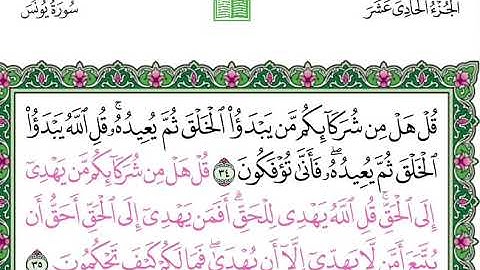 الجُزْءُ الحَادِي عَشَرَ
سُورَةُ يُونُسَ
قُلْ هَلْ مِن شُرَكَآئِكُم مَّن يَبْدَؤُاْ الْخَلْقَ ثُمَّ يُعِيدُهُۥ ۚ قُلِ اللَّهُ يَبْدَؤُاْ
الْخَلْقَ ثُمَّ يُعِيدُهُۥ ۖ فَأَنَّىٰ تُؤْفَكُونَ ٣٤ قُلْ هَلْ مِن شُرَكَآئِكُم مَّن يَهْدِىٓ
إِلَى الْحَقِّ ۚ قُلِ اللَّهُ يَهْدِى لِلْحَقِّ ۗ أَفَمَن يَهْدِىٓ إِلَى الْحَقِّ أَحَقُّ أَن
يُتَّبَعَ أَمَّن لَّا يَهِدِّىٓ إِلَّآ أَن يُهْدَىٰ ۖ فَمَا لَكُمْ كَيْفَ تَحْكُمُونَ ٣٥